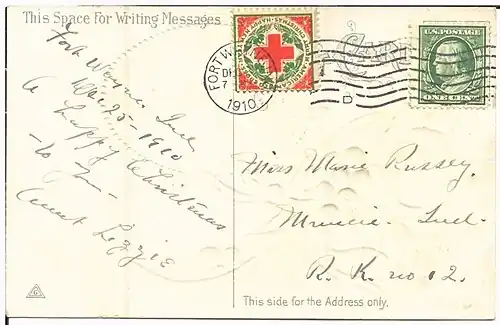 This Space For Writing Messages
Fort Wayne, Ind
Dec 25 - 1910
A happy Christmas
to you
Aunt Lizzie
FORT WAYNE
DE
7
1910
D
U.S. POSTAGE
ONE CENT
Miss Marie Russey.
Muncie Ind.
R. R. no 12.
This side for the Address only.